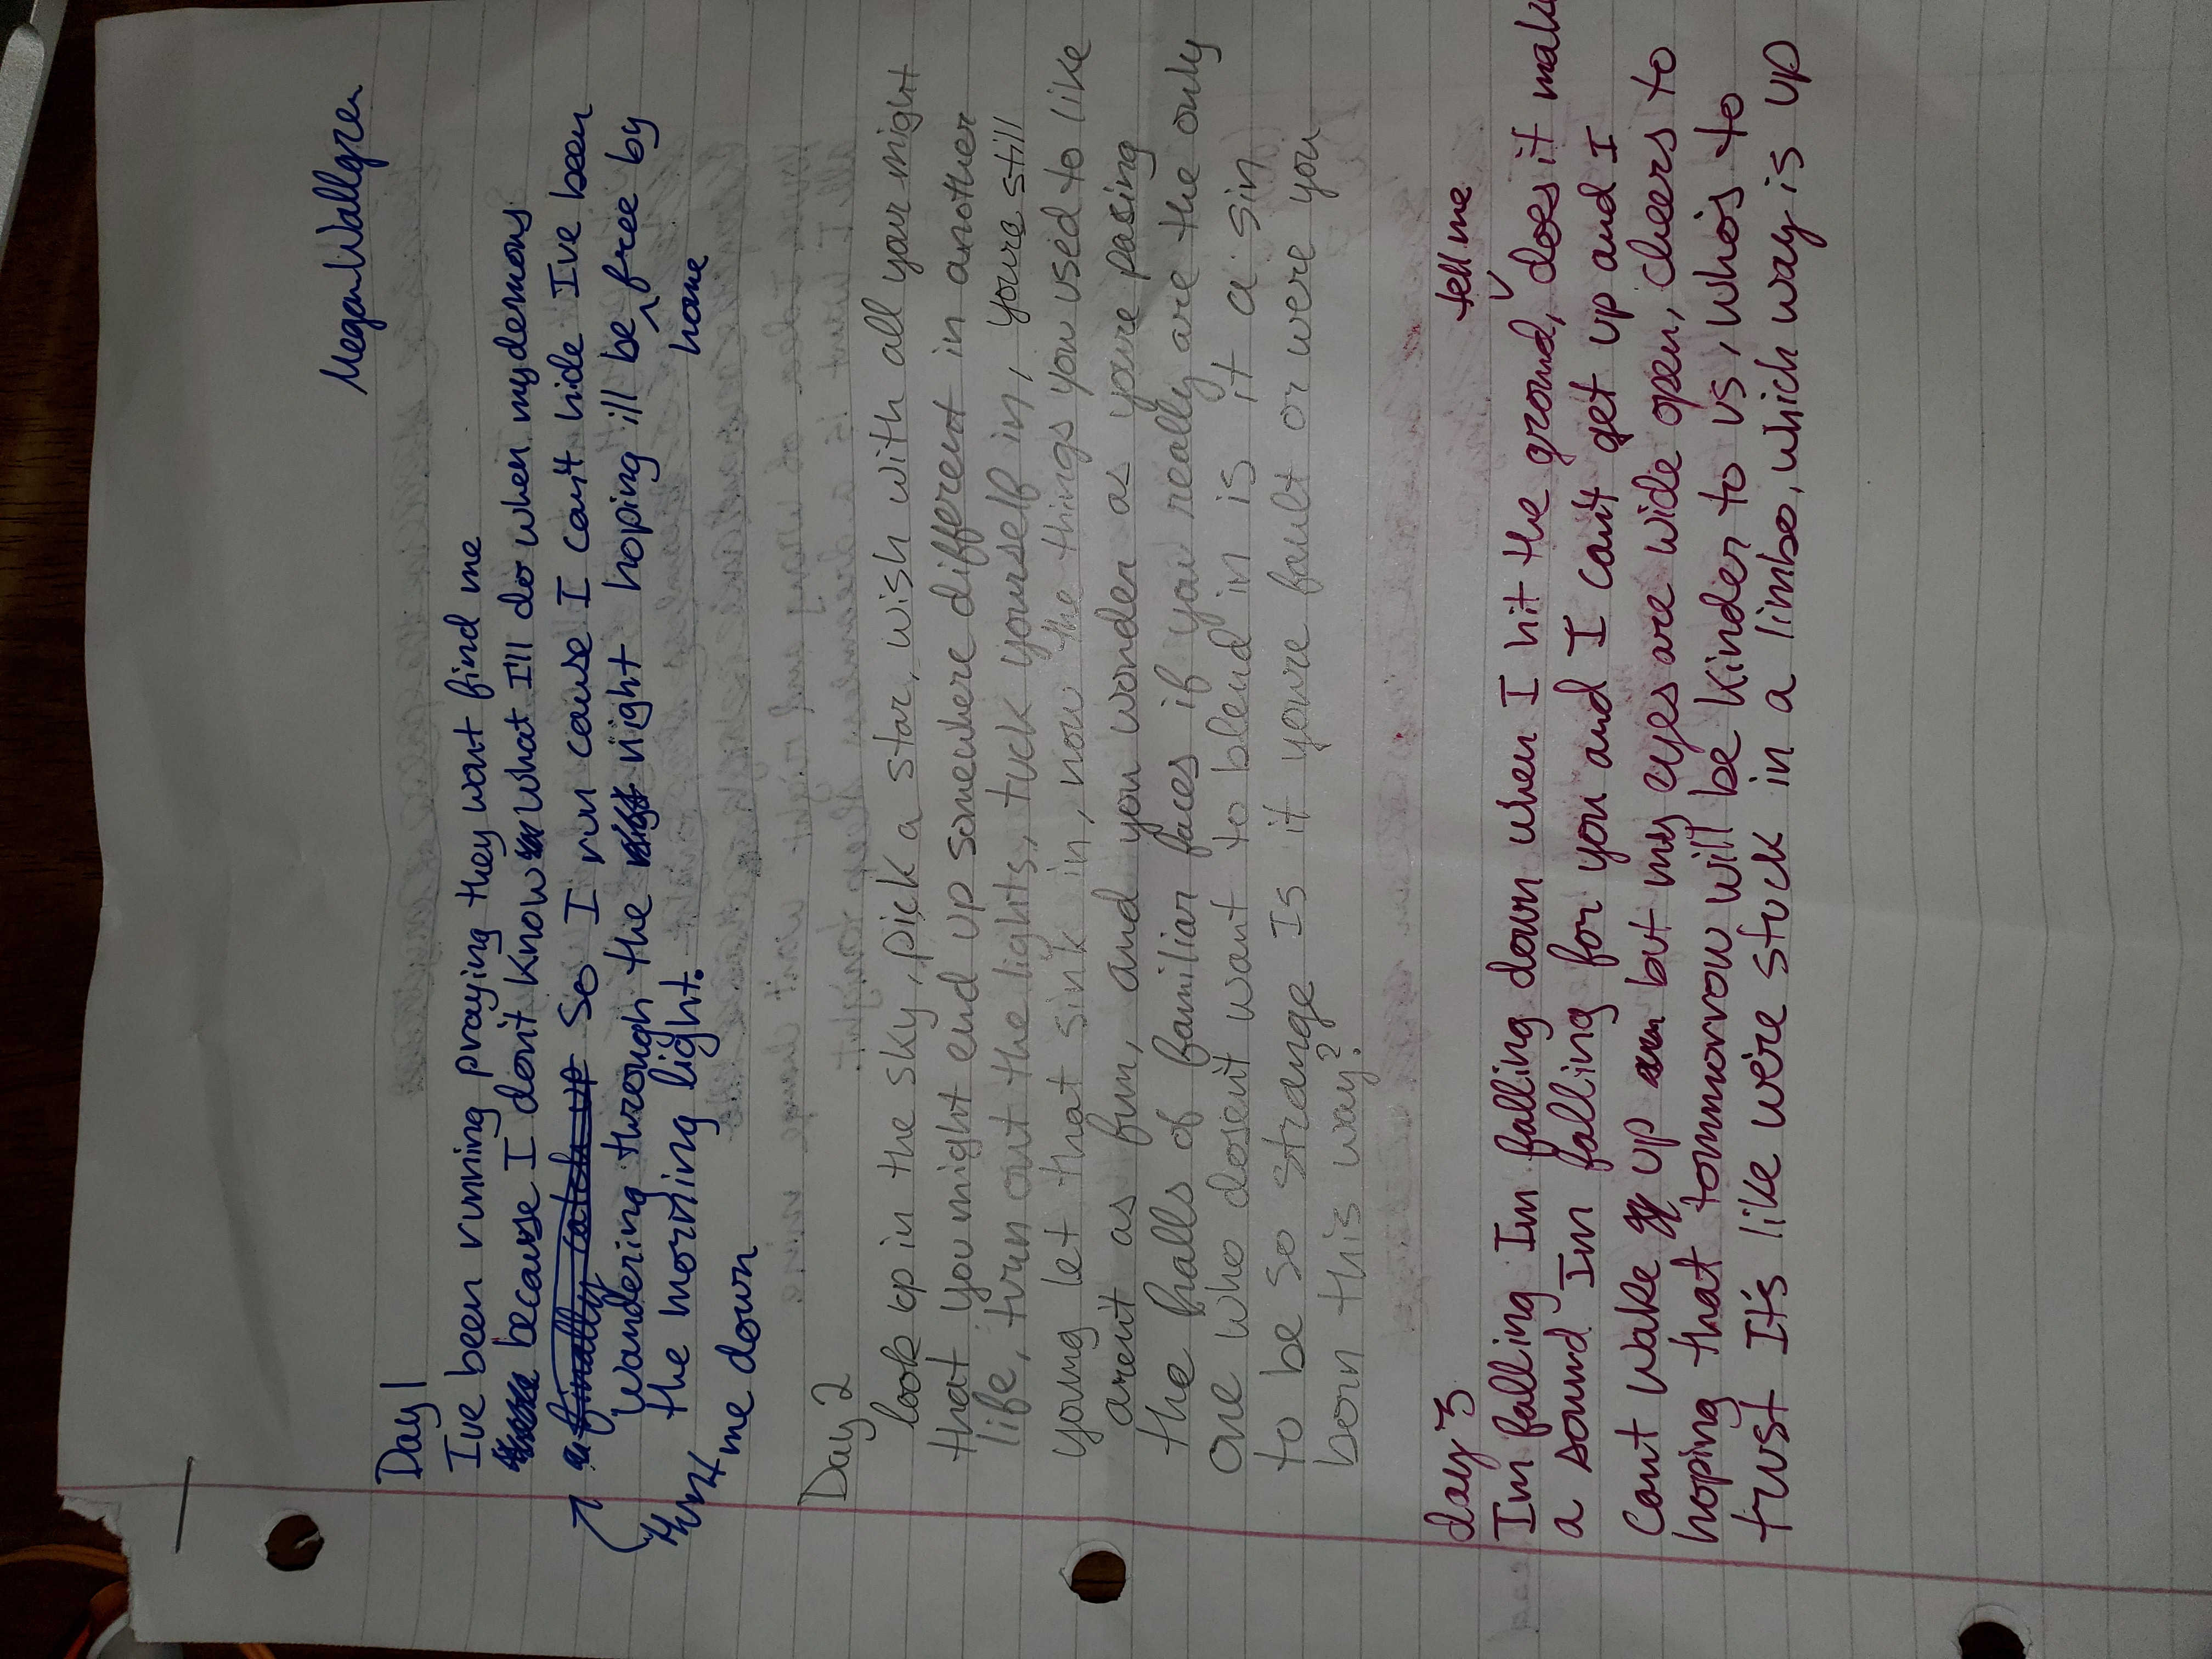 Megan Wallgren
Day 1
Ive been running praying they wont find me
because I don't know what I'll do when my demons
finally catch up So I run cause I can't hide Ive been
Wandering through the night hoping ill be free by
home
the morning light.
hunt
me down
Day 2
look up in the sky, pick a star, wish with all your might
that you might end up somewhere different in another
life, turn out the lights, tuck yourself in, youre still
young let that sink in, now the things you used to like
aren't as fun, and you wonder as youre pacing
the halls of familiar faces if you really are the only
one who dosen't want to blend in is it a sin
to be so strange Is it youre fault or were you
born this way?
day 3
tell me
Im falling Im falling down when I hit the ground, does it make
a sound Im falling for you and I can't get up and I
cant wake up but my eyes are wide open, cheers to
hoping that tommorrow will be kinder to us, who's to
trust It's like we're stuck in a limbo, which way is up